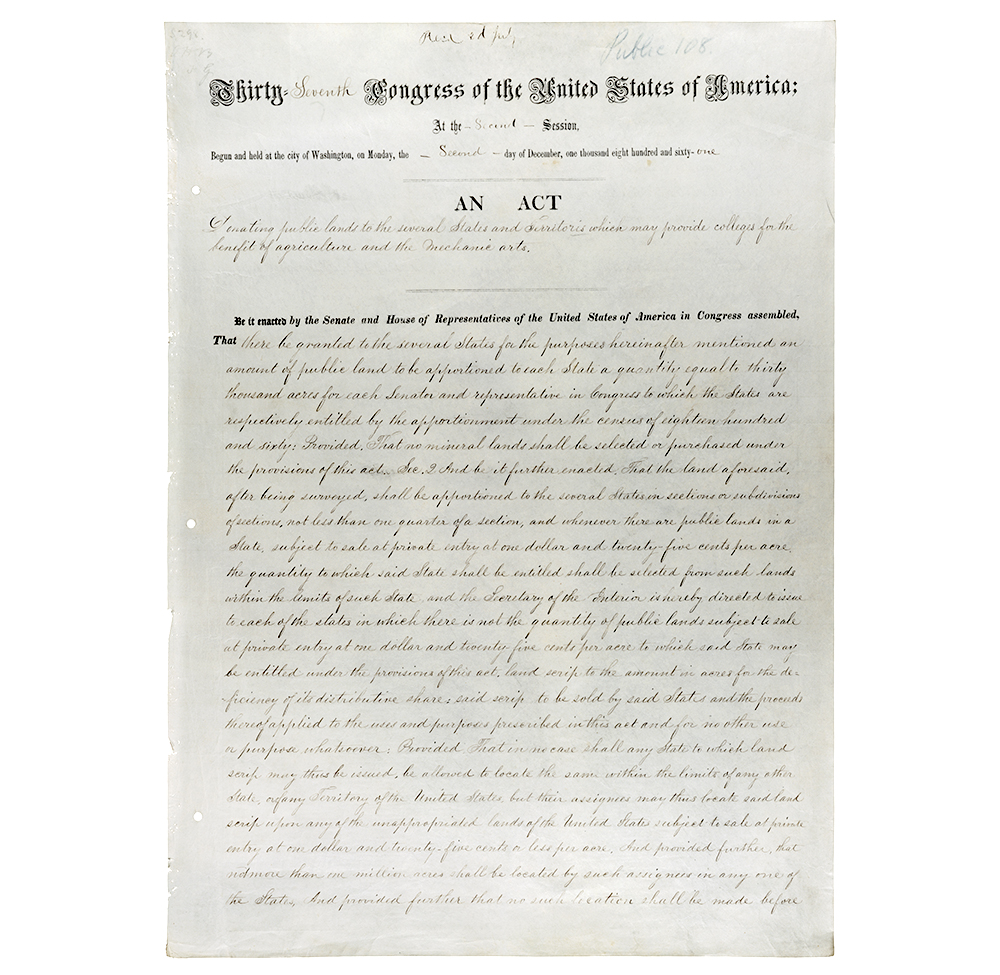 Public 108.
Thirty-Seventh Congress of the United States of America:
At the - Second - Session,
Begun and held at the city of Washington, on Monday, the - Second - day of December, one thousand eight hundred and sixty-one
AN ACT
Donating public lands to the several States and Territoris which may provide colleges for the
benefit of agriculture and the Mechanic arts.
Be it enacted by the Senate and House of Representatives of the United States of America in Congress assembled,
That there be granted to the several States for the purposes hereinafter mentioned an
amount of public land to be apportioned to each State a quantity equal to thirty
thousand acres for each Senator and representative in Congress to which the States are
respectively entitled by the apportionment under the census of eighteen hundred
and sixty: Provided. That no mineral lands shall be selected or purchased under
the provisions of this act. Sec. 2 And be it further enacted, That the land aforesaid,
after being surveyed, shall be apportioned to the several States in sections or subdivisions
of sections, not less than one quarter of a section, and whenever there are public lands in a
State, subject to sale at private entry at one dollar and twenty-five cents per acre,
the quantity to which said State shall be entitled shall be selected from such lands
within the limits of such State, and the Secretary of the Interior is hereby directed to issue
to each of the states in which there is not the quantity of public lands subject to sale
at private entry at one dollar and twenty five cents per acre to which said State may
be entitled under the provisions of this act, land scrip to the amount in acres for the de-
ficiency of its distributive share; said scrip to be sold by said States and the proceeds
thereof applied to the uses and purposes prescribed in this act and for no other use
or purpose whatsoever: Provided, That in no case shall any State to which land
scrip may thus be issued, be allowed to locate the same within the limits of any other
State, or of any Territory of the United States, but their assignees may thus locate said land
scrip upon any of the unappropriated lands of the United States subject to sale at private
entry at one dollar and twenty-five cents or less per acre. And provided further, that
not more than one million acres shall be located by such assignees in any one of
the States, And provided further that no such location shall be made before